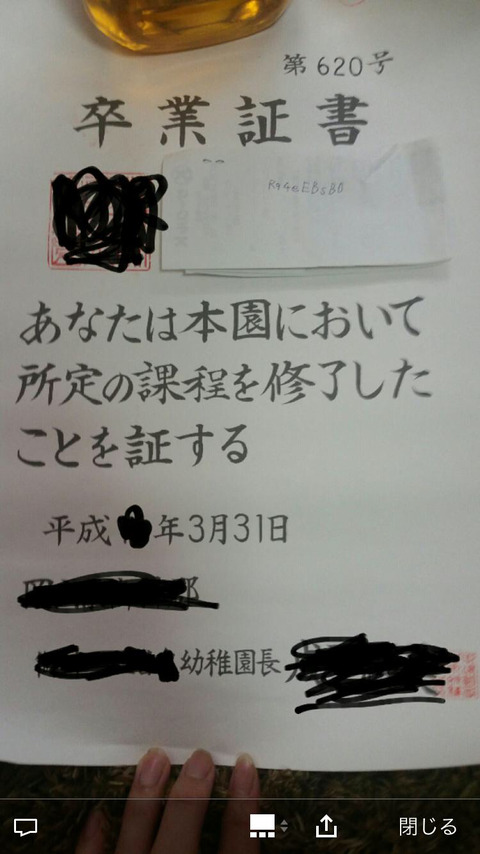 第620号
卒業証書
R44eEBsB0
あなたは本園において
所定の課程を修了した
ことを証する
平成 年3月31日
幼稚園長
閉じる